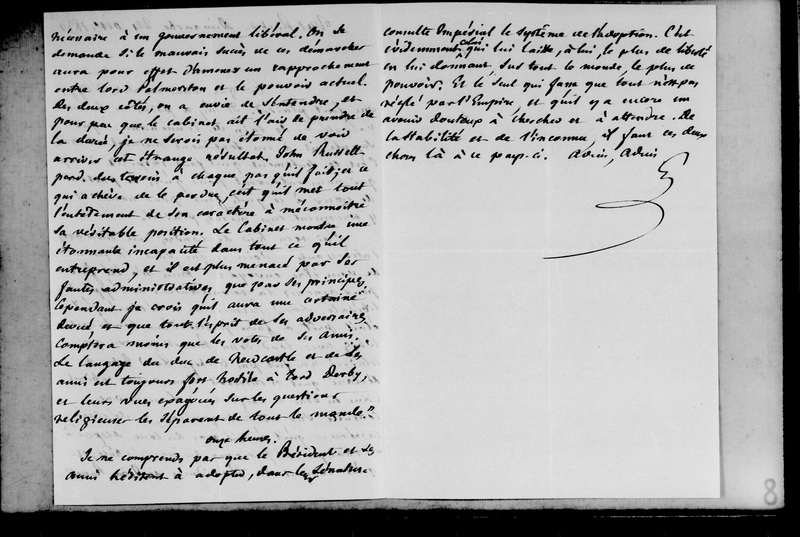 nécessaire à un gouvernement libéral. On se
demande si le mauvais succès de ces démarches
aura pour effet d'amener un rapprochement
entre lord Palmerston et le pouvoir actuel.
Des deux côtés, on a envie de s'entendre, et
pour peu que le cabinet ait l'air de prendre de
la durée, je ne serois pas étonné de voir
arriver cet étrange résultat. John Russell
perd du terrain à chaque pas qu'il fait; et ce
qui achève de le perdre, c'est qu'il met tout
l'entêtement de son caractère à méconnoître
sa véritable position. Le Cabinet montre une
étonnante incapacité dans tout ce qu'il
entreprend, et il est plus menacé par ses
fautes administratives que par ses principes.
Cependant je crois qu'il aura une certaine
durée, et que tout l'esprit de ses adversaires
comptera moins que les votes de ses amis.
Le langage du duc de Newcastle et de ses
amis est toujours fort hostile à Lord Derby,
et leurs vues exagérées sur les questions
religieuses les séparent de tout le monde."
onze heures.
Je ne comprends pas que le Président et ses
amis hésitent à adopter, dans le Sénatus-
consulte Impérial le système de l'adoption. C'est
évidemment celui qui lui laisse, à lui, le plus de liberté
en lui donnant, sur tout le monde, le plus de
pouvoir. Et le seul qui fasse que tout n'est pas
réglé par l'Empire, et qu'il y a encore un
avenir douteux à chercher et à attendre. De
la stabilité et de l'inconnu, il faut ces deux
choses là à ce pays-ci. Adieu, Adieu
8